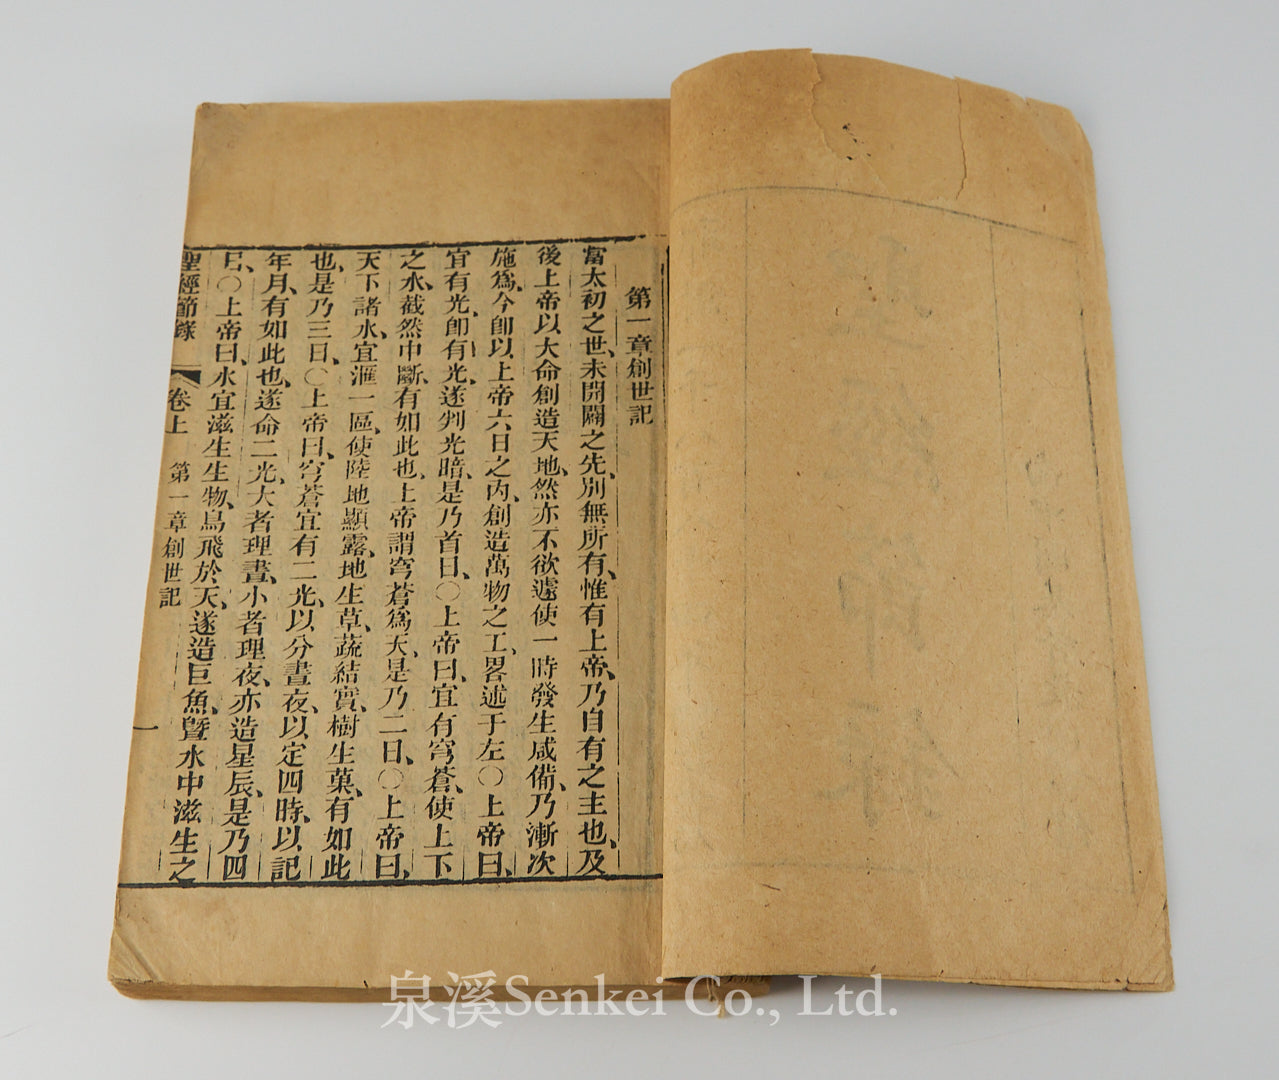 第一章創世記
當太初之世、未開闢之先、別無所有、惟有上帝、乃自有之主也、及
後上帝以大命創造天地、然亦不欲遽使一時發生咸備、乃漸次
施爲、今卽以上帝六日之內、創造萬物之工、畧述于左〇上帝曰、
宜有光、卽有光、遂判光暗、是乃首日、〇上帝曰、宜有穹蒼、使上下
之水、截然中斷、有如此也、上帝謂穹蒼爲天、是乃二日、〇上帝曰、
天下諸水、宜滙一區、使陸地顯露、地生草蔬、結實、樹生菓、有如此
也、是乃三日、〇上帝曰、穹蒼宜有二光、以分晝夜、以定四時、以記
年月、有如此也、遂命二光、大者理晝、小者理夜、亦造星辰、是乃四
日、〇上帝曰、水宜滋生生物、鳥飛於天、遂造巨魚、曁水中滋生之
聖經節錄 卷上 第一章創世記 一
泉溪Senkei Co., Ltd.